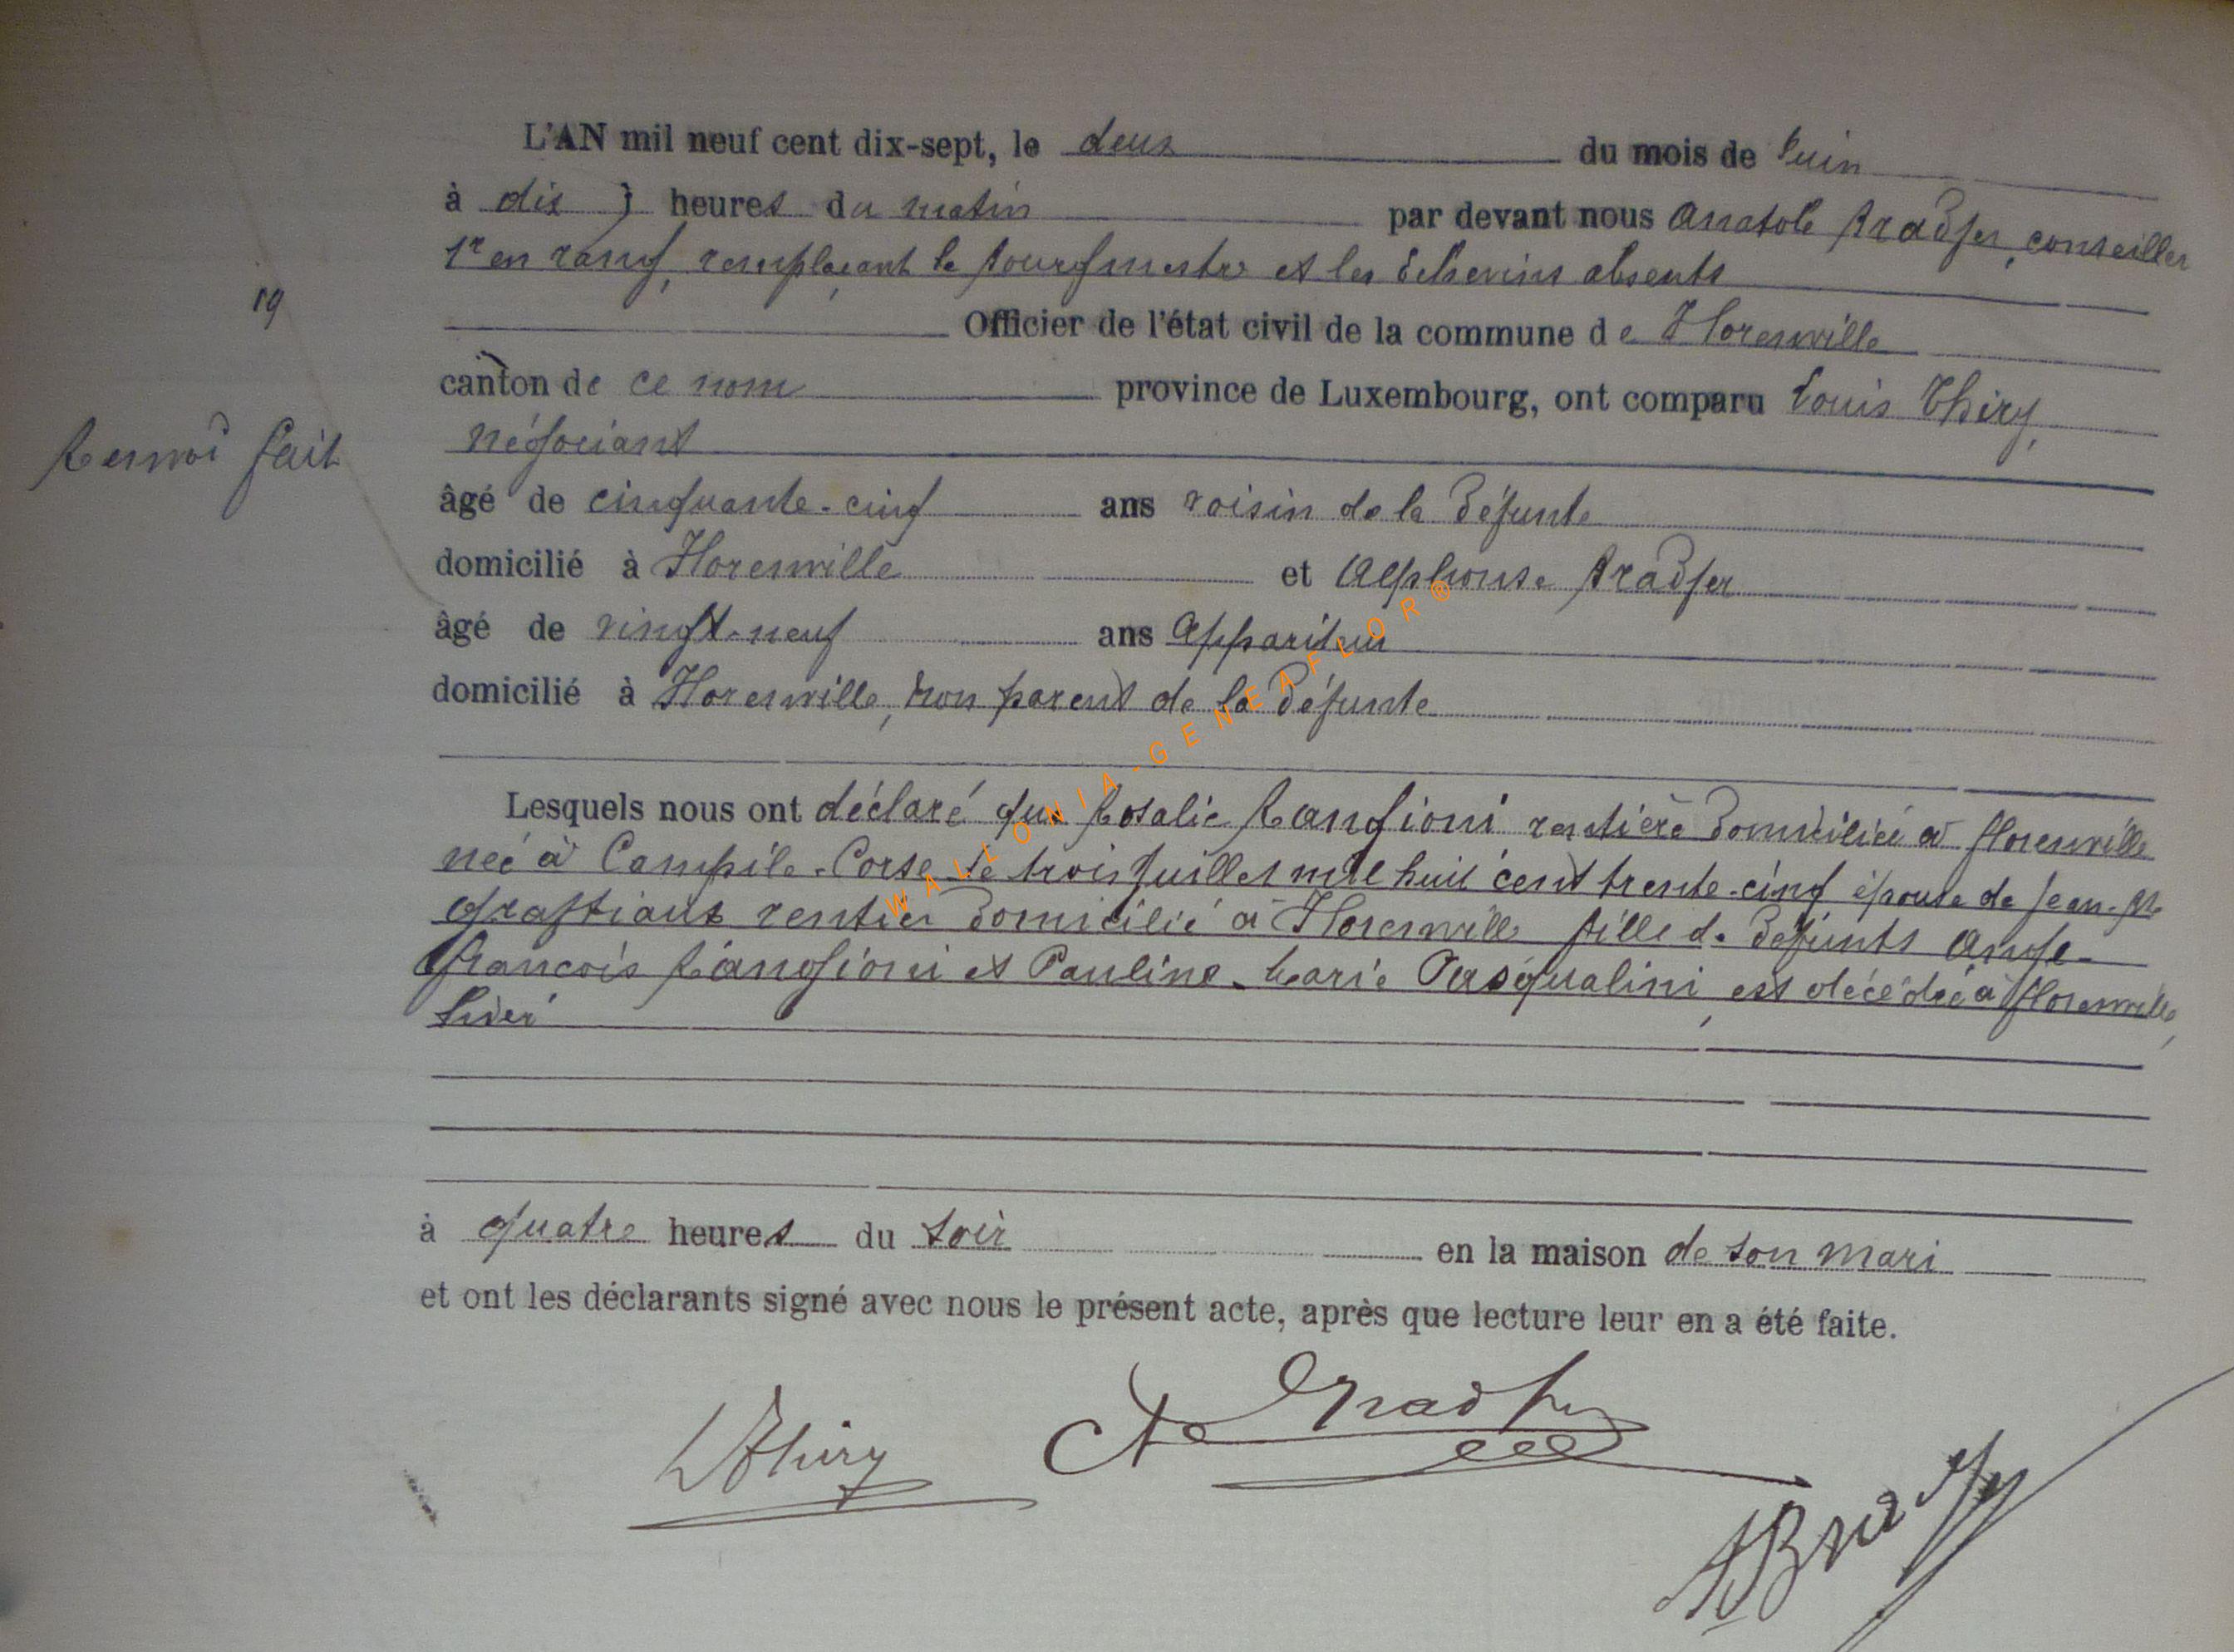 L'AN mil neuf cent dix-sept, le deux du mois de Juin
à dix heures du matin par devant nous Anatole Bradfer, conseiller
1r en rang, remplaçant le bourgmestre et les Echevins absents
19
Officier de l'état civil de la commune de Florenville
canton de ce nom province de Luxembourg, ont comparu Louis Thiry,
Renvoi fait
négociant
âgé de cinquante-cinq ans voisin de la défunte
domicilié à Florenville et Alphonse Bradfer
âgé de vingt-neuf ans appariteur
domicilié à Florenville, non parent de la défunte
Lesquels nous ont déclaré que Rosalie Rangioni rentière domiciliée à Florenville
née à Campile-Corse le trois Juillet mil huit cent trente-cinq épouse de Jean-
rentier domicilié à Florenville fille de défunts Ange-
François Rangioni et Pauline-Marie Pasqualini, est décédée à Florenville,
hier
à quatre heures du soir en la maison de son mari
et ont les déclarants signé avec nous le présent acte, après que lecture leur en a été faite.
L Thiry
Bradfer
A Bradfer
WALLONIA-GENEAFLOR®